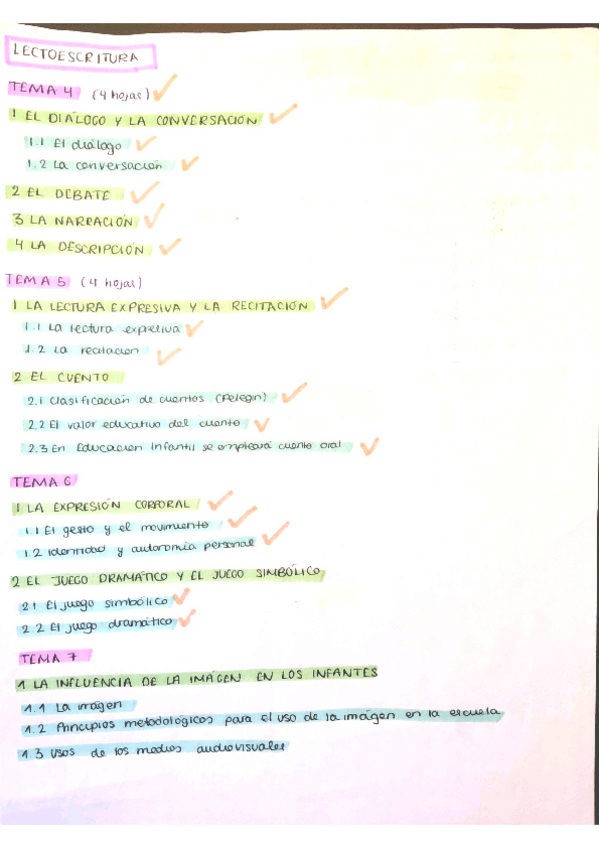 LECTOESCRITURA
TEMA 4 (4 hojas)
1 EL DIÁLOGO Y LA CONVERSACIÓN
1.1 El diálogo
1.2 La conversación
2 EL DEBATE
3 LA NARRACIÓN
4 LA DESCRIPCIÓN
TEMA 5 (4 hojas)
1 LA LECTURA EXPRESIVA Y LA RECITACIÓN
1.1 La lectura expresiva
1.2 La recitación
2 EL CUENTO
2.1 Clasificación de cuentos (Pelegin)
2.2 El valor educativo del cuento
2.3 En Educación Infantil se empleará cuento oral
TEMA 6
1 LA EXPRESIÓN CORPORAL
1.1 El gesto y el movimiento
1.2 Identidad y autonomía personal
2 EL JUEGO DRAMÁTICO Y EL JUEGO SIMBÓLICO
2.1 El juego simbólico
2.2 El juego dramático
TEMA 7
1 LA INFLUENCIA DE LA IMÁGEN EN LOS INFANTES
1.1 La imágen
1.2 Principios metodológicos para el uso de la imágen en la escuela
1.3 Usos de los medios audiovisuales